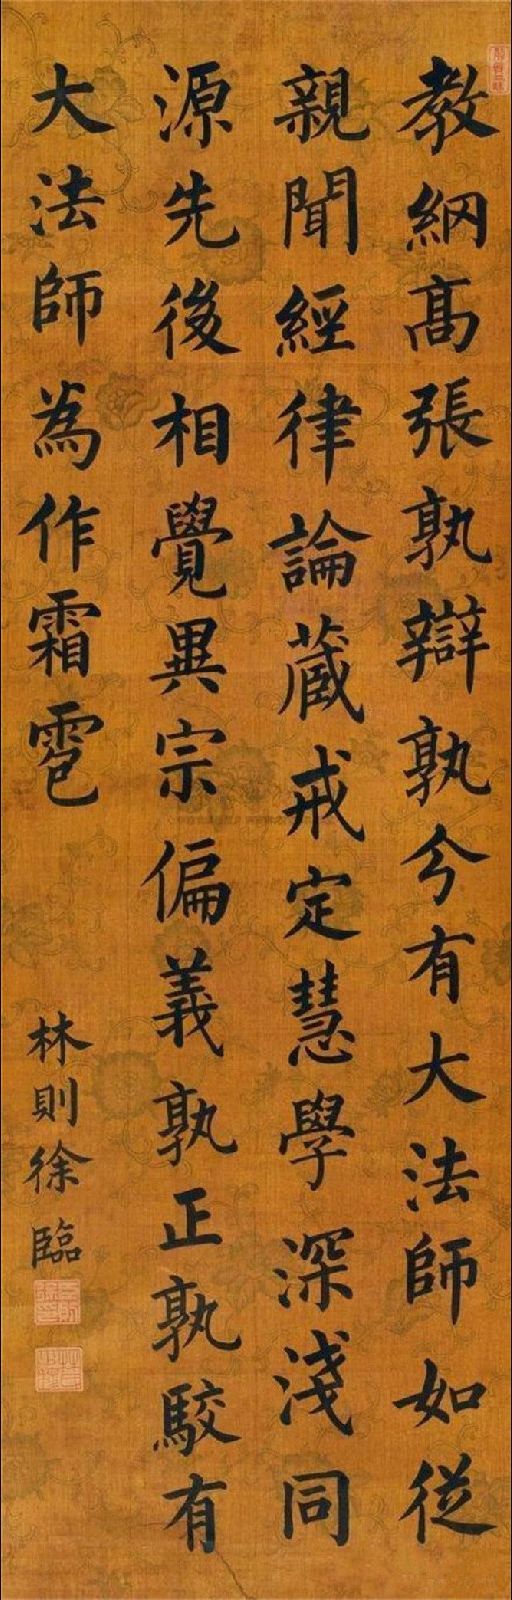 教綱高張孰辯孰分有大法師如從
親聞經律論藏戒定慧學深淺同
源先後相覺異宗偏義孰正孰駁有
大法師為作霜雹
林則徐臨